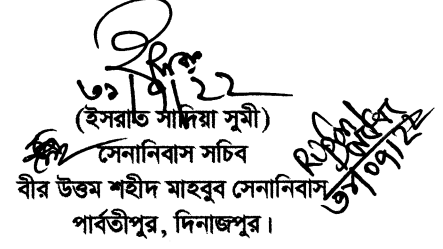 ৩১/৭/২২
(ইসরাত সাদিয়া সুমী)
সেনানিবাস সচিব
বীর উত্তম শহীদ মাহবুব সেনানিবাস
পার্বতীপুর, দিনাজপুর।